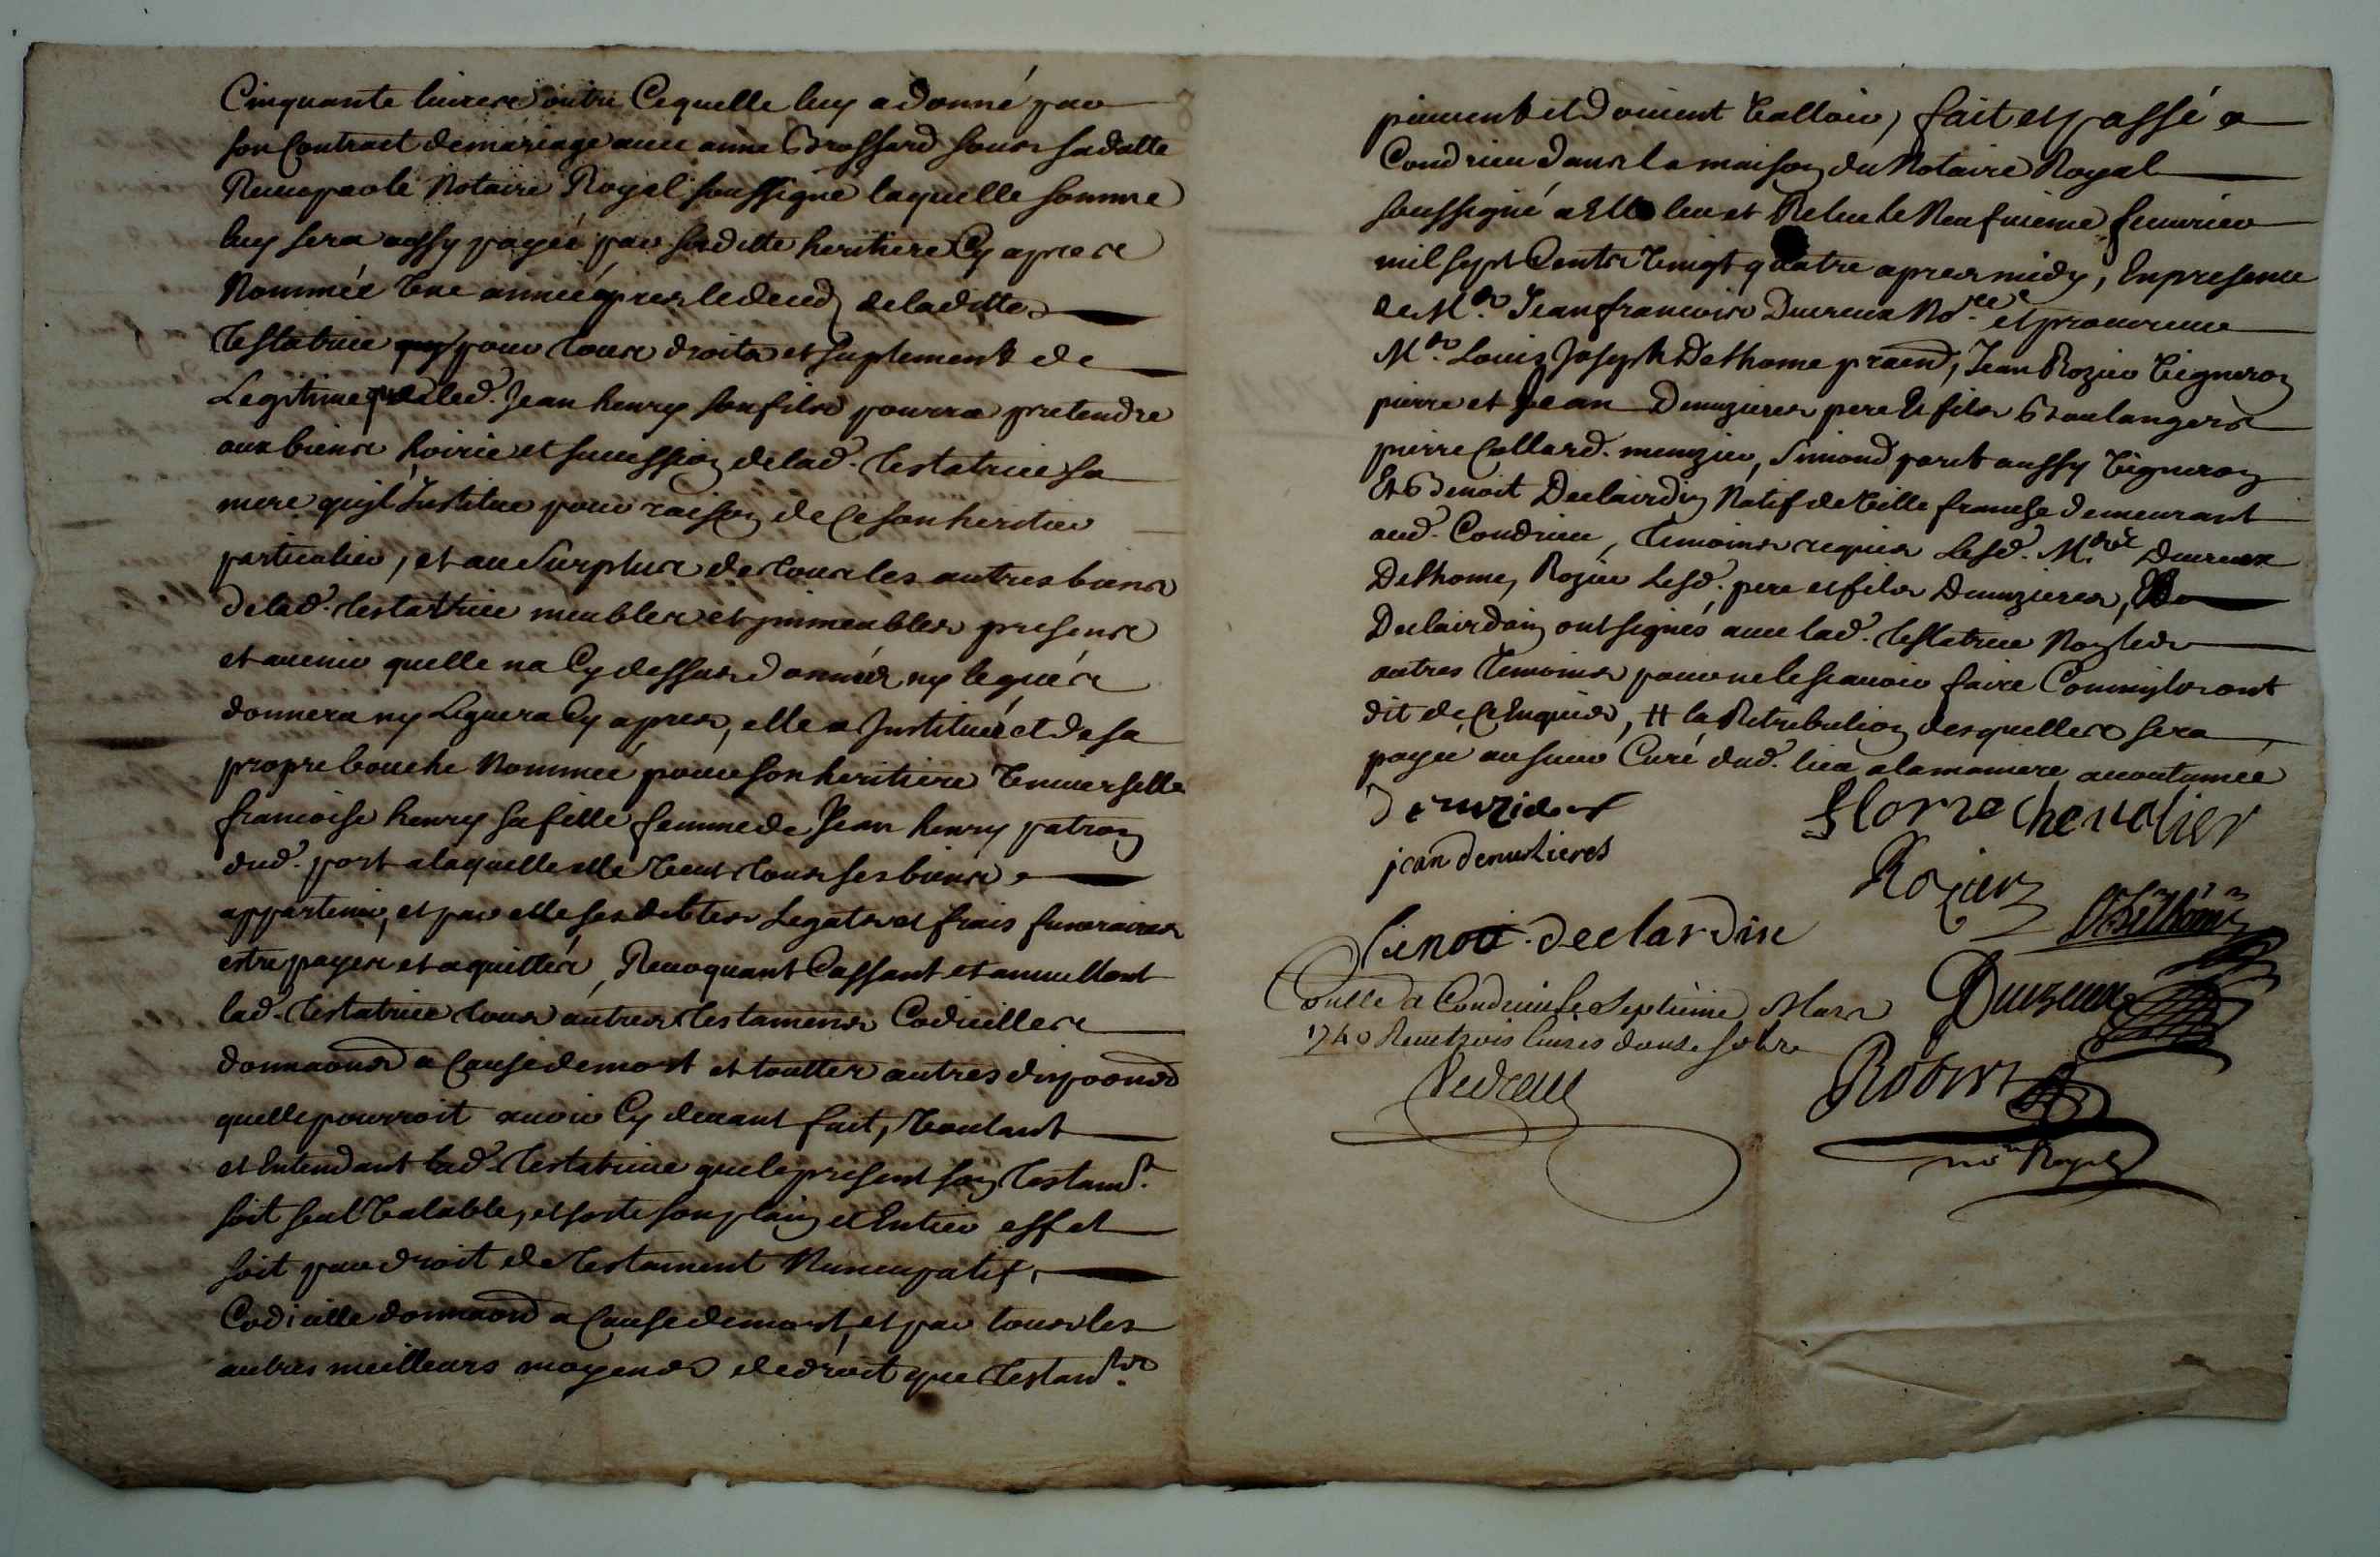 Cinquante livres outre Cequelle luy a donné par
son Contract de mariage avec anne Brossard sous sa datte
Receu par le Notaire Royal soussigné laquelle somme
luy sera aussy payée par saditte heritiere Cy apres
Nommée Une année apres le deced de laditte
Testatrice pour tous droits et suplement de
Legitime que led. Jean henry son fils pourra pretendre
aux biens hoirie et succession de lad. Testatrice sa
mere quil Institue pour raison de Ce son heritier
particulier, et au Surplus de tous les autres biens
de lad. testatrice meubles et immeubles presens
et avenir quelle na Cy dessus donnés ny legués
donnera ny Leguera Cy apres, elle a Institué et de sa
propre bouche Nommée pour son heritiere Universelle
francoise henry sa fille femme de Jean henry patron
dud. port a laquelle elle Veut tous ses biens
appartenir, et par elle ses debtes Legats et frais funeraires
estre payes et aquittés, Revoquant Cassant et annullant
lad. testatrice tous autres testamens Codicilles
donnaons a Cause de mort et touttes autres dispoons
quelle pourroit avoir Cy devant fait, Voulant
et Entendant lad. Testatrice que le present son Testamt.
soit seul Valable, et sorte son plain et Entier effet
soit par droit de testament Nuncupatif,
Codicille donnaon a Cause de mort, et par tous les
autres meilleurs moyens de droit que Testamts.
peuvent et doivent Valloir, fait et passé a
Condrieu dans la maison du Notaire Royal
soussigné a Elle leu et Releu le Neufvieme fevvrier
mil sept Cents Vingt quatre apres midy, En presence
de Mre. Jean francois Ducreux Nore. et procureur
Mre. Louis Joseph Delhome praend, Jean Rozier Vigneron
pierre et Jean Demuzieres pere Et fils Boulangers
pierre Collard. , Simond paret aussy Vigneron
Et Benoit Declairdin Natif de Ville franche demeurant
aud. Condrieu, temoins requis Lesd. Mres Ducreux
Delhome, Rozier Lesd. pere et fils Demuzieres,
Declairdain ont signés avec lad. testatrice Non les
autres temoins pour ne le scavoir faire Comm'ils ont
dit de Ce Enquis, H la Retribution desquelles sera
payée au sieur Curé dud. lieu a la maniere accoutumée
Demuzieres
florize Chevalier
jean demusieres
Rozier
Delhome
benoit declardin
Conllé a Condrieu le Septieme Mars
Ducreux
1740 Receu trois livres douze sols
Robert
nore Royal